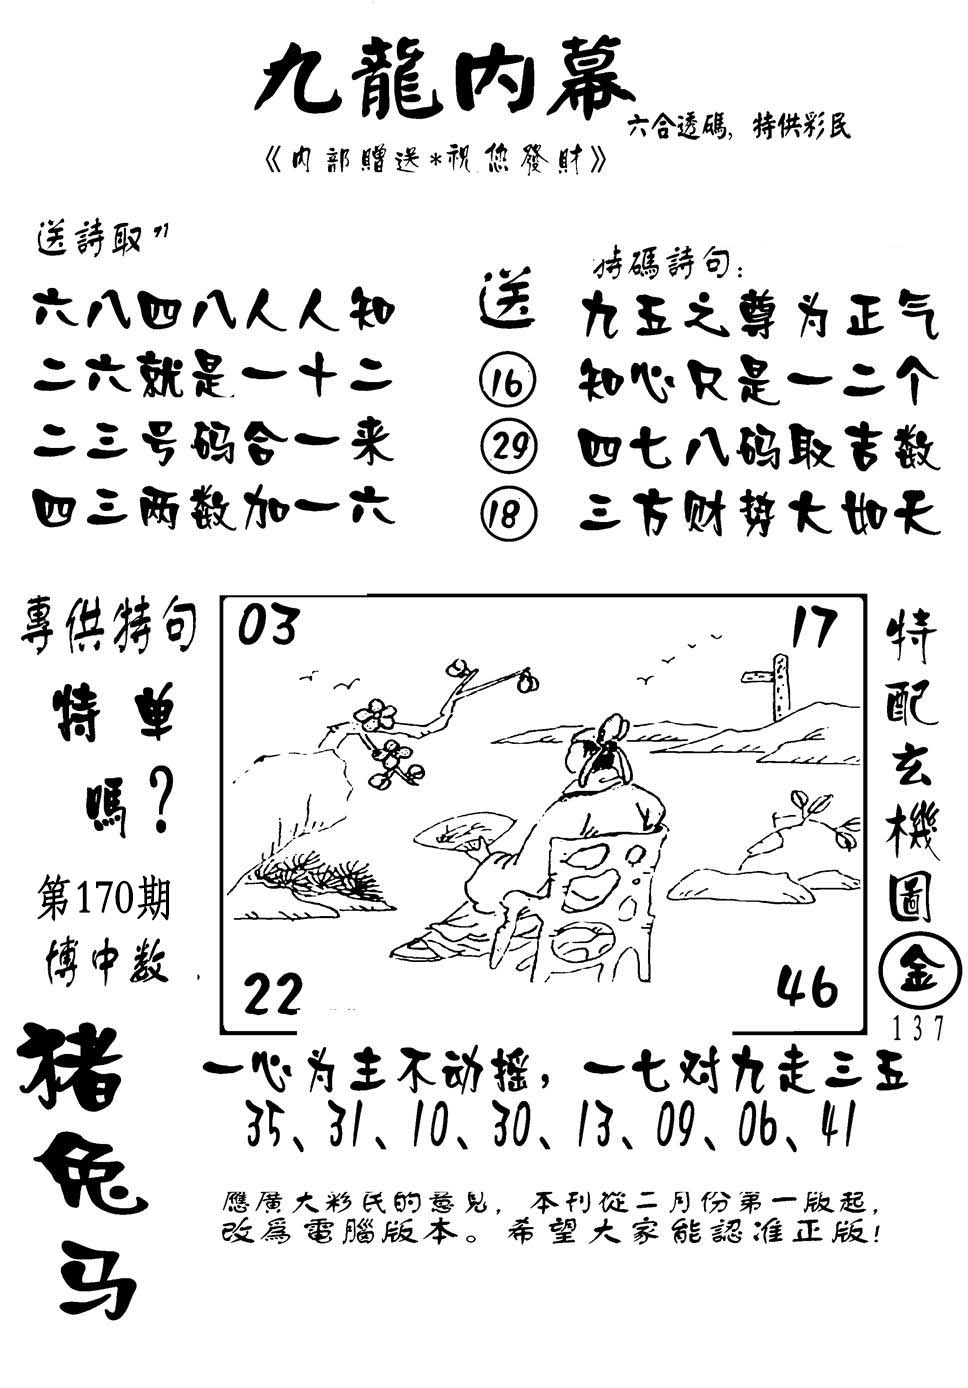 九龍内幕
六合透碼,特供彩民
《内部贈送*祝您發財》
送詩取"
六八四八人人知
二六就是一十二
二三号码合一来
四三两数加一六
送
16
29
18
特碼詩句:
九五之尊为正气
知心只是一二个
四七八码取吉数
三方财势大如天
專供特句
特单
嗎?
第170期
博中数
猪
兔
马
03
17
22
46
特配玄機圖
金
137
一心为主不动摇,一七对九走三五
35、31、10、30、13、09、06、41
應廣大彩民的意見,本刊從二月份第一版起,
改爲電腦版本。希望大家能認准正版!